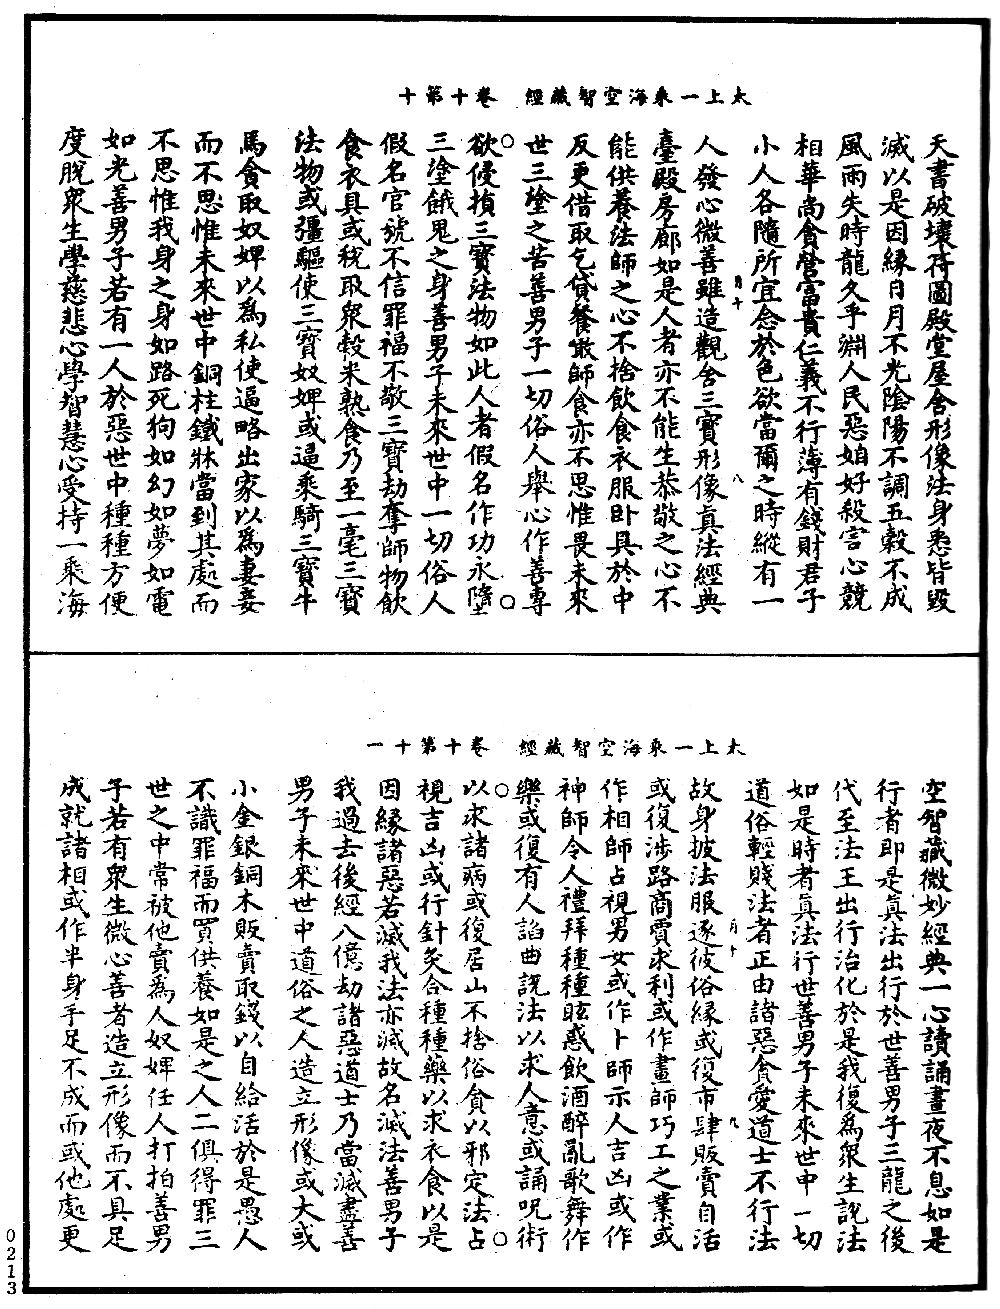 太上一乘海空智藏經　卷十第十
天書破壞符圖殿堂屋舍形像法身悉皆毀
滅以是因緣日月不光陰陽不調五穀不成
風雨失時龍久乎淵人民惡媢好殺害心競
相華尚貪營富貴仁義不行薄有錢財君子
小人各隨所宜念於色欲當爾之時縱有一
月十　八
人發心微善雖造觀舍三寶形像眞法經典
臺殿房廊如是人者亦不能生恭敬之心不
能供養法師之心不捨飲食衣服卧具於中
反更借取乞貸餐噉師食亦不思惟畏未來
世三塗之苦善男子一切俗人舉心作善專
欲侵損三寶法物如此人者假名作功永墮
三塗餓鬼之身善男子未來世中一切俗人
假名官號不信罪福不敬三寶劫奪師物飲
食衣具或稅取眾穀米熟食乃至一毫三寶
法物或彊驅使三寶奴婢或逼乘騎三寶牛
馬貪取奴婢以爲私使逼略出家以爲妻妾
而不思惟未來世中銅柱鐵牀當到其處而
不思惟我身之身如路死狗如幻如夢如電
如光善男子若有一人於惡世中種種方便
度脫眾生學慈悲心學智慧心受持一乘海
太上一乘海空智藏經　卷十第十一
空智藏微妙經典一心讀誦晝夜不息如是
行者即是眞法出行於世善男子三龍之後
代至法王出行治化於是我復爲眾生說法
如是時者眞法行世善男子未來世中一切
道俗輕賤法者正由諸惡貪愛道士不行法
月十　九
故身披法服逐彼俗緣或復市肆販賣自活
或復涉路商賈求利或作畫師巧工之業或
作相師占視男女或作卜師示人吉凶或作
神師令人禮拜種種眩惑飲酒醉亂歌舞作
樂或復有人諂曲說法以求人意或誦呪術
以求諸病或復居山不捨俗貪以邪定法占
視吉凶或行針灸合種種藥以求衣食以是
因緣諸惡若滅我法亦滅故名滅法善男子
我過去後經八億劫諸惡道士乃當滅盡善
男子未來世中道俗之人造立形像或大或
小金銀銅木販賣取錢以自給活於是愚人
不識罪福而買供養如是之人二俱得罪三
世之中常被他賣爲人奴婢任人打拍善男
子若有眾生微心善者造立形像而不具足
成就諸相或作半身手足不成而或他處更
0213